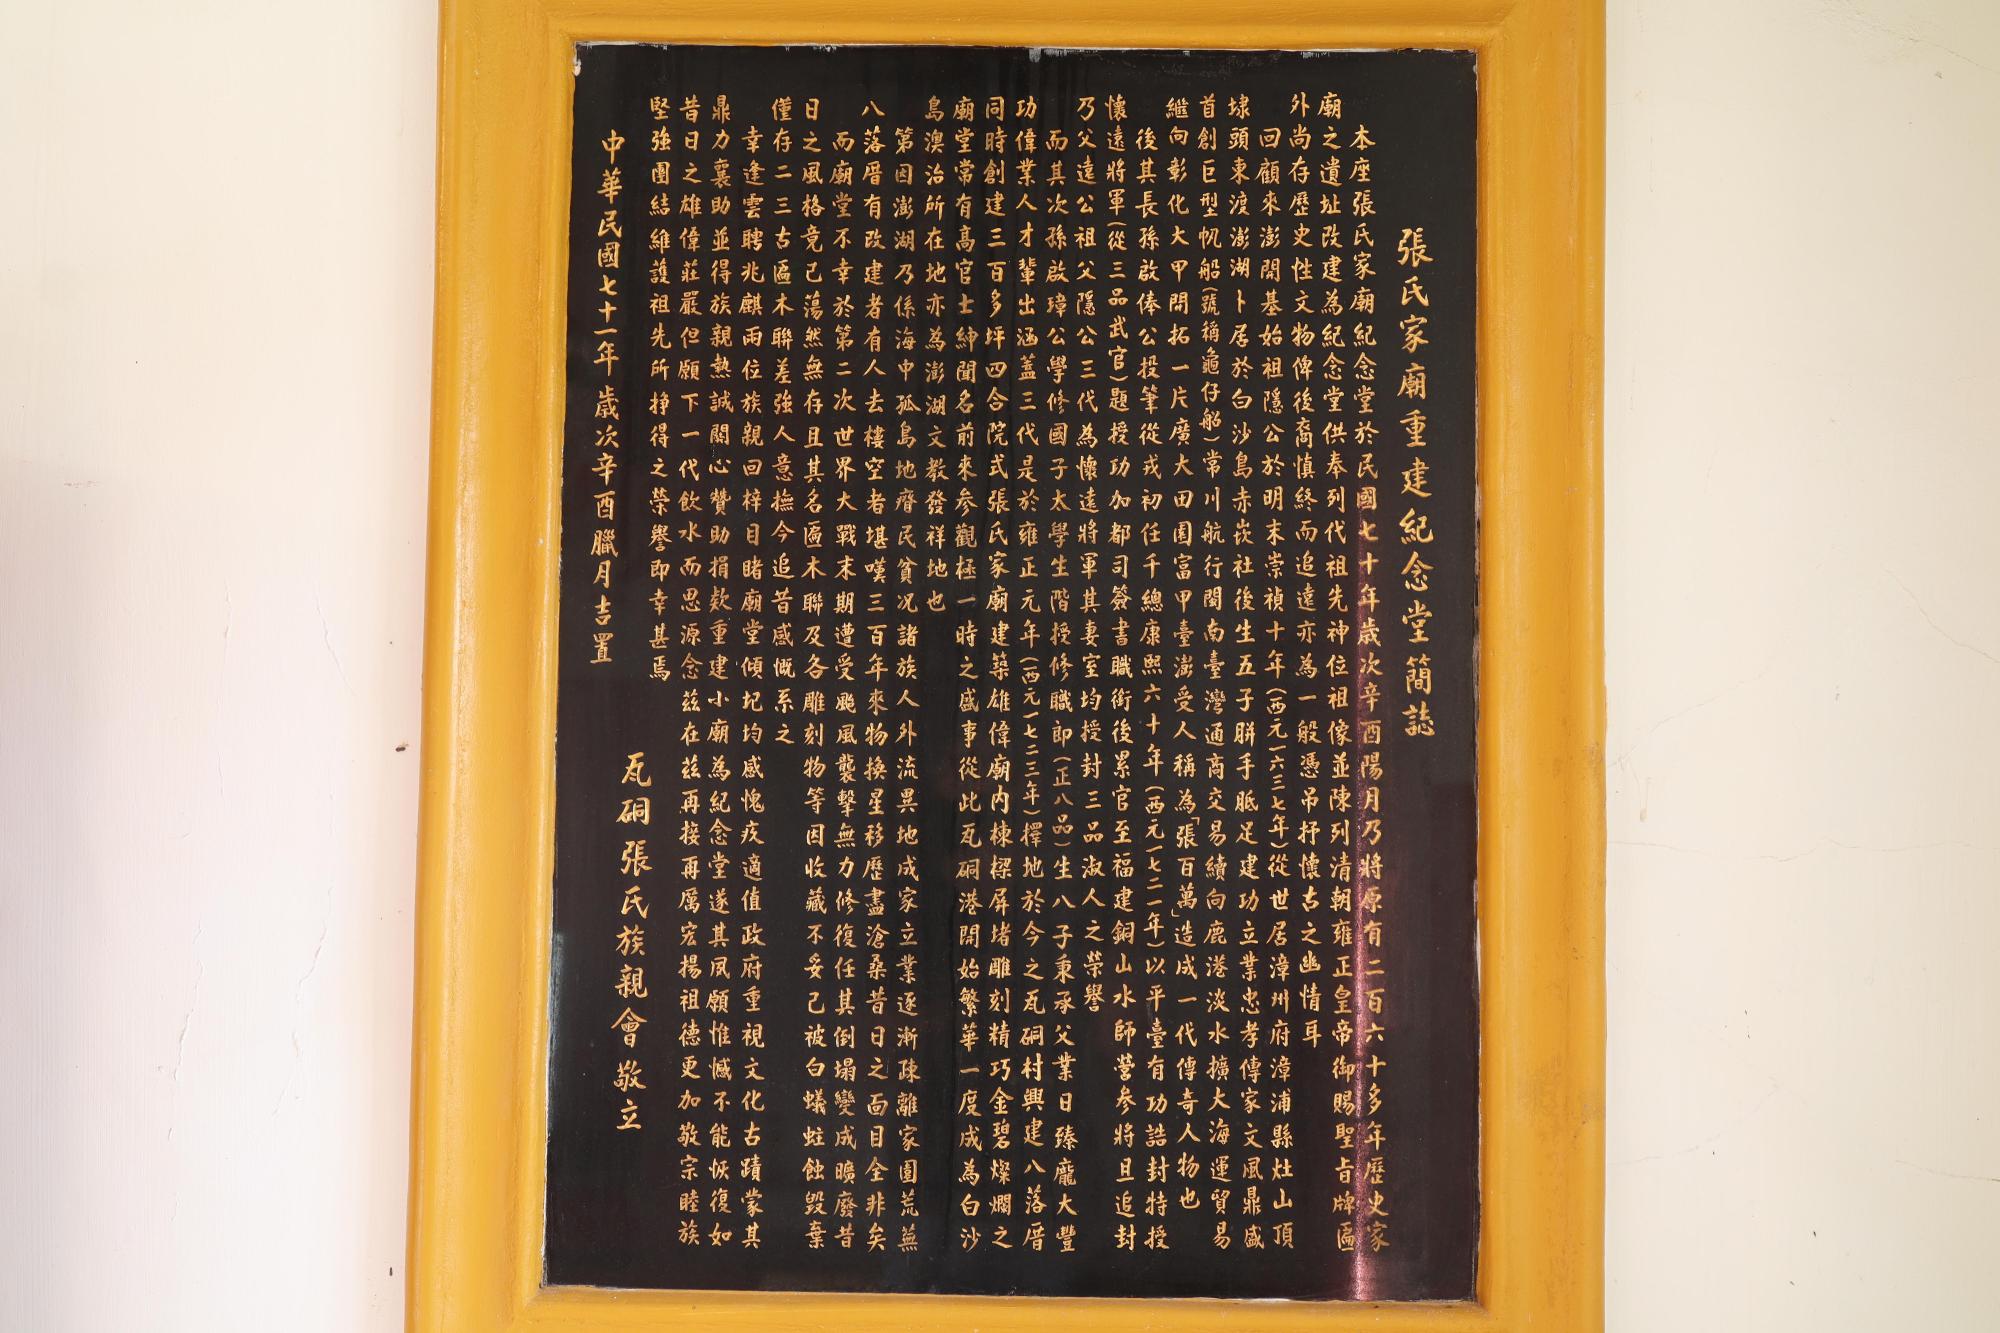 張氏家廟重建紀念堂簡誌
本座張氏家廟紀念堂於民國七十年歲次辛酉陽月乃將原有二百六十多年歷史家
廟之遺址改建為紀念堂供奉列代祖先神位祖像並陳列清朝雍正皇帝御賜聖旨牌匾
外尚存歷史性文物俾後裔慎終而追遠亦為一般憑吊抒懷古之幽情耳
回顧來澎開基始祖隱公於明末崇禎十年(西元一六三七年)從世居漳州府漳浦縣灶山頂
埭頭東渡澎湖卜居於白沙島赤崁社後生五子胼手胝足建功立業忠孝傳家文風鼎盛
首創巨型帆船(號稱龜仔船)常川航行閩南臺灣通商交易續向鹿港淡水擴大海運貿易
繼向彰化大甲開拓一片廣大田園富甲臺澎受人稱為「張百萬」造成一代傳奇人物也
後其長孫啟俸公投筆從戎初任千總康熙六十年(西元一七二一年)以平臺有功誥封特授
懷遠將軍(從三品武官)題授功加都司簽書職銜後累官至福建銅山水師營參將旦追封
乃父遠公祖父隱公三代為懷遠將軍其妻室均授封三品淑人之榮譽
而其次孫啟璋公學修國子太學生階授修職郎(正八品)生八子秉承父業日臻龐大豐
功偉業人才輩出涵蓋三代是於雍正元年(西元一七二三年)擇地於今之瓦硐村興建八落厝
同時創建三百多坪四合院式張氏家廟建築雄偉廟內棟樑屏堵雕刻精巧金碧燦爛之
廟堂常有高官士紳聞名前來參觀極一時之盛事從此瓦硐港開始繁華一度成為白沙
島澳治所在地亦為澎湖文教發祥地也
第因澎湖乃係海中孤島地瘠民貧況諸族人外流異地成家立業逐漸疎離家園荒蕪
八落厝有改建者有人去樓空者堪嘆三百年來物換星移歷盡滄桑昔日之面目全非矣
而廟堂不幸於第二次世界大戰末期遭受颱風襲擊無力修復任其倒塌變成曠廢昔
日之風格竟已蕩然無存且其名匾木聯及各雕刻物等因收藏不妥已被白蟻蛀蝕毀棄
僅存二三古匾木聯差強人意撫今追昔感慨系之
幸逢雲聘兆麒兩位族親回梓目睹廟堂傾圮均感愧疚適值政府重視文化古蹟蒙其
鼎力襄助並得族親熱誠關心贊助捐款重建小廟為紀念堂遂其夙願惟憾不能恢復如
昔日之雄偉莊嚴但願下一代飲水而思源念茲在茲再接再厲宏揚祖德更加敬宗睦族
堅強團結維護祖先所掙得之榮譽即幸甚焉
瓦硐張氏族親會敬立
中華民國七十一年歲次辛酉臘月吉置